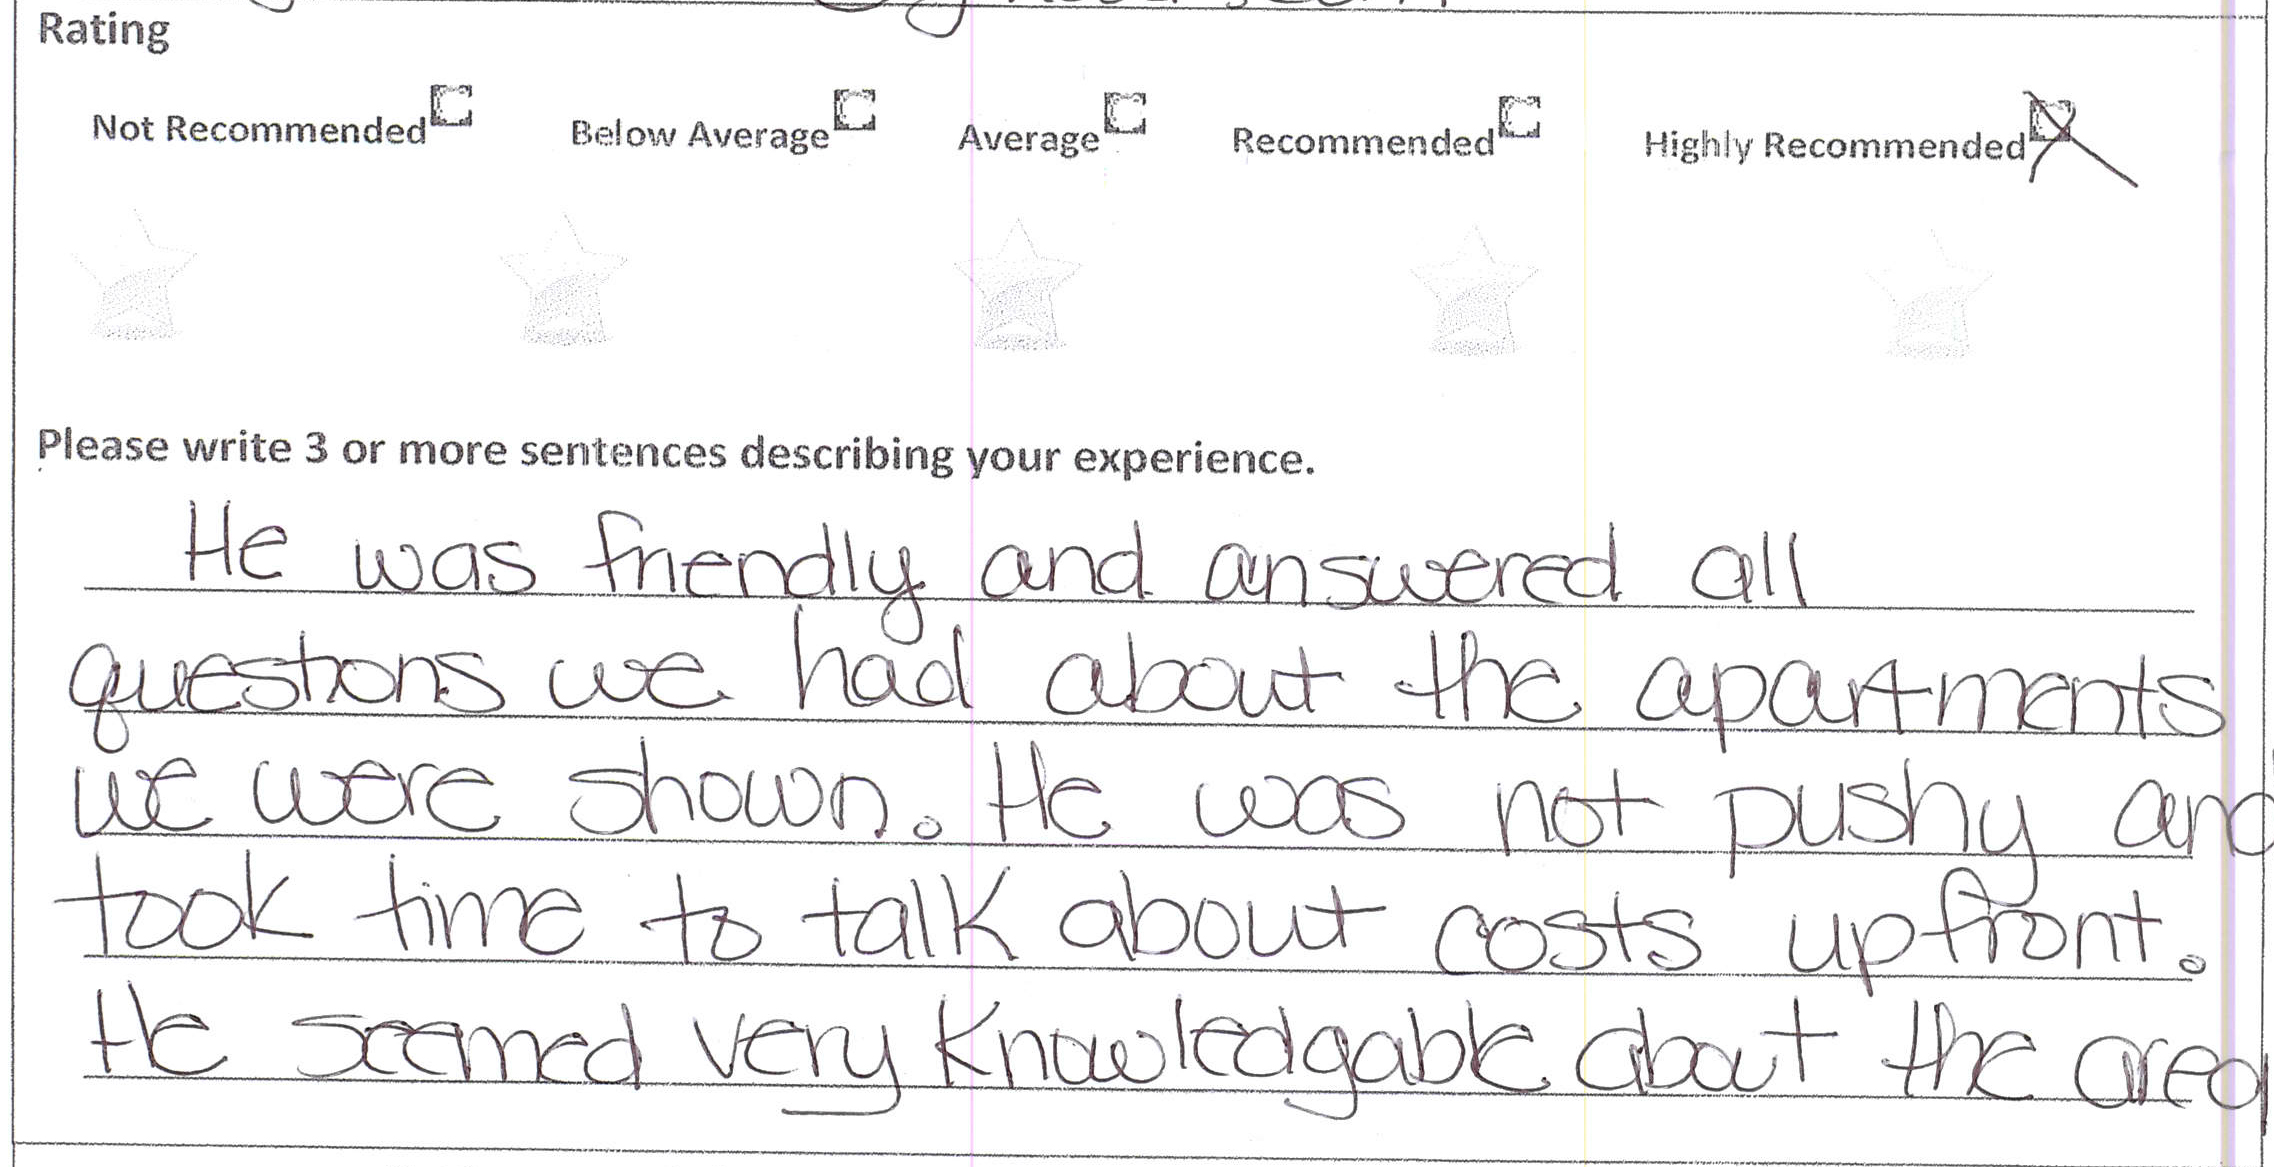 Rating
Not Recommended Below Average Average Recommended Highly Recommended
Please write 3 or more sentences describing your experience.
He was friendly and answered all
questions we had about the apartments
we were shown. He was not pushy and
took time to talk about costs upfront.
He seemed very knowledgable about the area